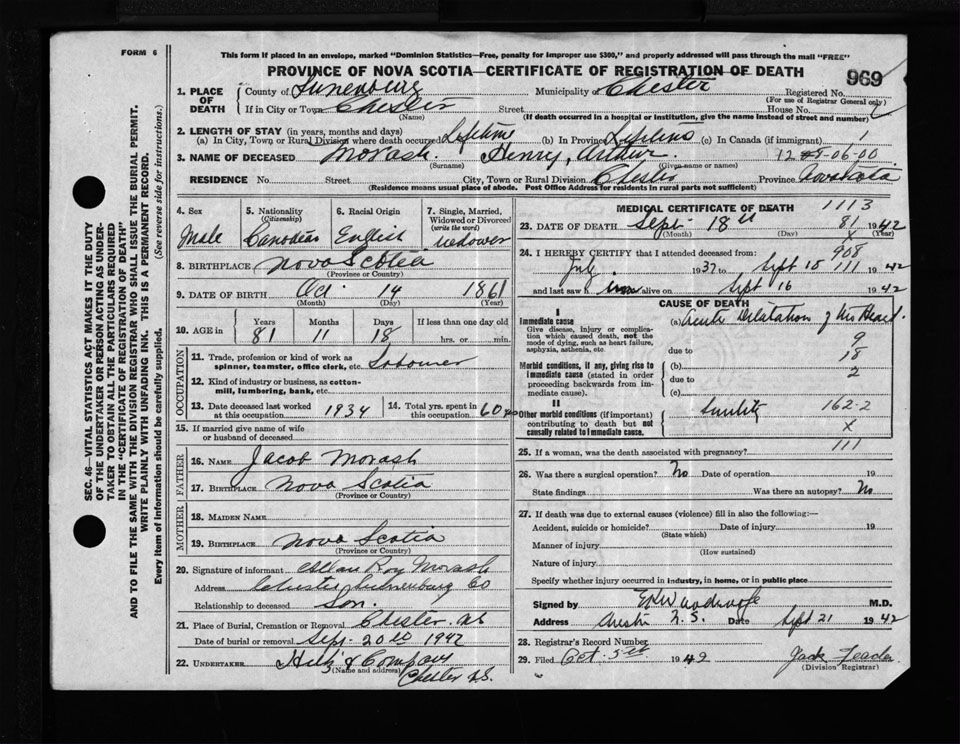 FORM 6
This form if placed in an envelope, marked "Dominion Statistics—Free, penalty for improper use $300," and properly addressed will pass through the mail "FREE"
PROVINCE OF NOVA SCOTIA—CERTIFICATE OF REGISTRATION OF DEATH
969
SEC. 46—VITAL STATISTICS ACT MAKES IT THE DUTY
OF THE UNDERTAKER OR PERSON ACTING AS UNDER-
TAKER TO OBTAIN ALL THE PARTICULARS REQUIRED
IN THE "CERTIFICATE OF REGISTRATION OF DEATH"
AND TO FILE THE SAME WITH THE DIVISION REGISTRAR WHO SHALL ISSUE THE BURIAL PERMIT.
WRITE PLAINLY WITH UNFADING INK. THIS IS A PERMANENT RECORD.
Every item of information should be carefully supplied. (See reverse side for instructions.)
1. PLACE OF DEATH
County of Lunenburg Municipality of Chester Registered No.
(For use of Registrar General only)
If in City or Town Chester Street House No.
(Name) (If death occurred in a hospital or institution, give the name instead of street and number)
2. LENGTH OF STAY (in years, months and days)
(a) In City, Town or Rural Division where death occurred Lifetime (b) In Province Lifetime (c) In Canada (if immigrant)
3. NAME OF DECEASED Morash. Henry, Arthur.
(Surname) (Given name or names)
RESIDENCE No. Street City, Town or Rural Division Chester Province
(Residence means usual place of abode. Post Office Address for residents in rural parts not sufficient)
4. Sex
Male
5. Nationality
(Citizenship)
Canadian
6. Racial Origin
English
7. Single, Married, Widowed or Divorced
(write the word)
Widower
8. BIRTHPLACE Nova Scotia
(Province or Country)
9. DATE OF BIRTH Oct 14 1861
(Month) (Day) (Year)
10. AGE in Years Months Days If less than one day old
81 11 18 hrs. or min.
OCCUPATION
11. Trade, profession or kind of work as
spinner, teamster, office clerk, etc.
12. Kind of industry or business, as cotton-
mill, lumbering, bank, etc.
13. Date deceased last worked
at this occupation 1934
14. Total yrs. spent in
this occupation 60
15. If married give name of wife
or husband of deceased
FATHER
16. NAME Jacob Morash
17. BIRTHPLACE Nova Scotia
(Province or Country)
MOTHER
18. MAIDEN NAME
19. BIRTHPLACE Nova Scotia
(Province or Country)
20. Signature of informant Allan Roy Morash
Address Chester Lunenburg Co
Relationship to deceased Son.
21. Place of Burial, Cremation or Removal Chester. NS
Date of burial or removal Sept. 20 1942
22. UNDERTAKER & Company
(Name and Address)
Chester NS.
MEDICAL CERTIFICATE OF DEATH 1113
23. DATE OF DEATH Sept 18 81 1942
(Month) (Day) (Year)
24. I HEREBY CERTIFY that I attended deceased from: 908
July 1937 to Sept 18 111 1942
and last saw him alive on Sept 16 1942
CAUSE OF DEATH
I
Immediate cause
Give disease, injury or complica-
tion which caused death, not the
mode of dying, such as heart failure,
asphyxia, asthenia, etc.
(a) Acute Dilatation of the Heart.
due to 9
18
Morbid conditions, if any, giving rise to
immediate cause (stated in order
proceeding backwards from im-
mediate cause).
(b) 2
due to
(c)
II
Other morbid conditions (if important)
contributing to death but not
causally related to immediate cause.
Senility 162-2
X
25. If a woman, was the death associated with pregnancy? 111
26. Was there a surgical operation? No Date of operation 19
State findings Was there an autopsy? No
27. If death was due to external causes (violence) fill in also the following:—
Accident, suicide or homicide? Date of injury 19
(State which)
Manner of injury
(How sustained)
Nature of injury
Specify whether injury occurred in industry, in home, or in public place
Signed by M.D.
Address Chester N.S. Date Sept 21 1942
28. Registrar's Record Number
29. Filed Oct. 5th 1942
(Division Registrar)